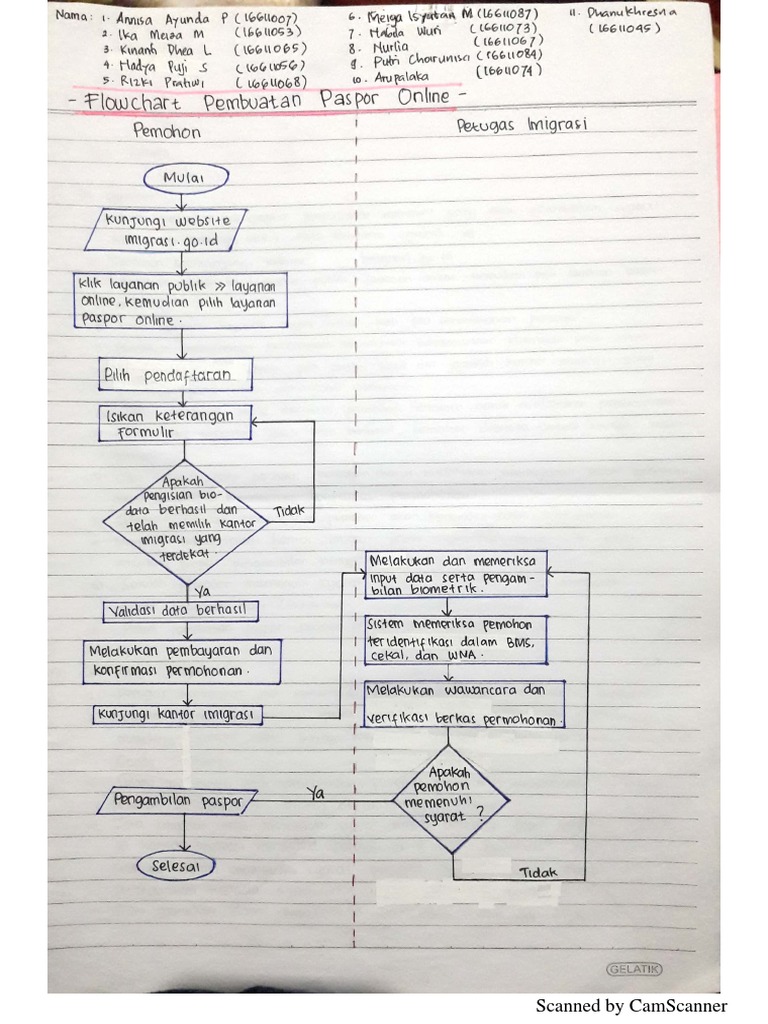 Nama : 1. Annisa Ayunda P (16611007)
2. Ika Meisa M (16611053)
3. Kinanti Dhea L (16611065)
4. Madya Puji S (16611056)
5. Rizki Pratiwi (16611068)
6. Meiga Isyatan M (16611087)
7. Wuri (16611073)
8. Nurlia (16611067)
9. Putri Charunisa (16611084)
10. Arupalaka (16611074)
11. Dhanukhresna
(16611045)
- Flowchart Pembuatan Paspor Online -
Pemohon
Petugas Imigrasi
Mulai
Kunjungi website
imigrasi.go.id
Klik layanan publik >> layanan
online, kemudian pilih layanan
paspor online.
Pilih pendaftaran
Isikan keterangan
formulir
Apakah
pengisian bio-
data berhasil dan
telah memilih kantor
imigrasi yang
terdekat.
Tidak
Ya
Validasi data berhasil
Melakukan pembayaran dan
konfirmasi permohonan.
Kunjungi kantor imigrasi
Melakukan dan memeriksa
input data serta pengam-
bilan biometrik.
Sistem memeriksa pemohon
teridentifikasi dalam BMS,
cekal, dan WNA.
Melakukan wawancara dan
verifikasi berkas permohonan.
Apakah
pemohon
memenuhi
syarat ?
Ya
Tidak
Pengambilan paspor
Selesai
GELATIK
Scanned by CamScanner